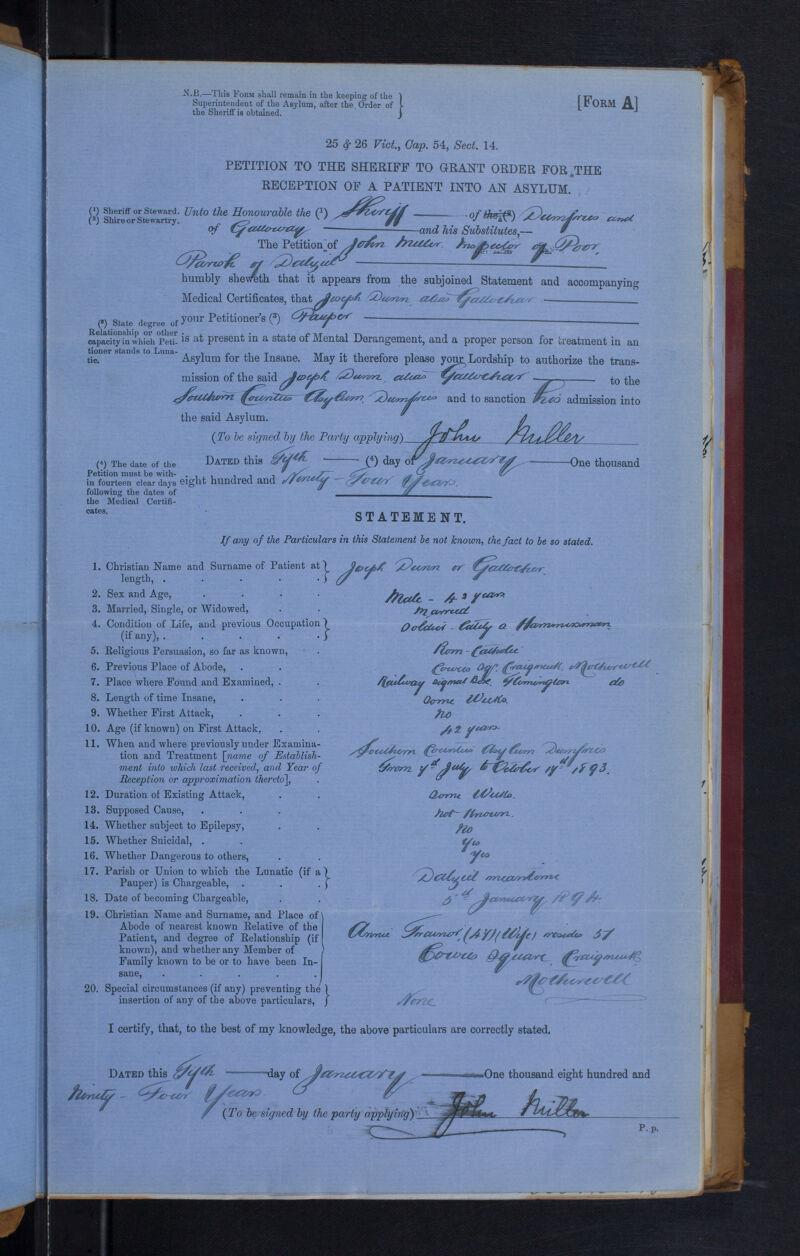 N.B.—This Form shall remain in the keeping of the
Superintendent of the Asylum, after the Order of
the Sheriff is obtained.
[Form A]
25 & 26 Vict., Cap. 54, Sect. 14.
PETITION TO THE SHERIFF TO GRANT ORDER FOR THE
RECEPTION OF A PATIENT INTO AN ASYLUM.
(1) Sheriff or Steward.
(2) Shire or Stewartry.
Unto the Honourable the (1) Sheriff of the (2) Dumfries and
of Galloway and his Substitutes,—
The Petition of John Miller. Inspector of Poor,
Parish of Dalziel
humbly sheweth that it appears from the subjoined Statement and accompanying
Medical Certificates, that Joseph Dunn alias Gallochar
(3) State degree of
Relationship or other
capacity in which Peti-
tioner stands to Luna-
tic.
your Petitioner's (3) Pauper
is at present in a state of Mental Derangement, and a proper person for treatment in an
Asylum for the Insane. May it therefore please your Lordship to authorize the trans-
mission of the said Joseph Dunn alias Gallochar to the
Southern Counties Asylum, Dumfries and to sanction his admission into
the said Asylum.
(To be signed by the Party applying) John Miller
(4) The date of the
Petition must be with-
in fourteen clear days
following the dates of
the Medical Certifi-
cates.
Dated this Fifth (4) day of January One thousand
eight hundred and Ninety - Four Years.
STATEMENT.
If any of the Particulars in this Statement be not known, the fact to be so stated.
1. Christian Name and Surname of Patient at
length, . Joseph Dunn or Gallocher.
2. Sex and Age, Male - 43 years
3. Married, Single, or Widowed, Married
4. Condition of Life, and previous Occupation
(if any), . Soldier - lately a Hammerman.
5. Religious Persuasion, so far as known, Rom - Catholic
6. Previous Place of Abode, Cowies Sqr. Craigneuk, Motherwell
7. Place where Found and Examined, Railway Signal Box. Flemington do
8. Length of time Insane, Some Weeks.
9. Whether First Attack, No
10. Age (if known) on First Attack, 42 years
11. When and where previously under Examina-
tion and Treatment [name of Establish-
ment into which last received, and Year of
Reception or approximation thereto],
Southern Counties Asylum Dumfries
From 7th July to October 17th 1893.
12. Duration of Existing Attack, Some Weeks.
13. Supposed Cause, Not Known.
14. Whether subject to Epilepsy, No
15. Whether Suicidal, Yes
16. Whether Dangerous to others, Yes
17. Parish or Union to which the Lunatic (if a
Pauper) is Chargeable, Dalziel meantime
18. Date of becoming Chargeable, 5th January 1894.
19. Christian Name and Surname, and Place of
Abode of nearest known Relative of the
Patient, and degree of Relationship (if
known), and whether any Member of
Family known to be or to have been In-
sane,
Annie (Wife) resides 57
Cowies Square, Craigneuk
Motherwell
20. Special circumstances (if any) preventing the
insertion of any of the above particulars, None
I certify, that, to the best of my knowledge, the above particulars are correctly stated.
Dated this Fifth day of January One thousand eight hundred and
Ninety - Four Years.
(To be signed by the party applying) John Miller
P. p.